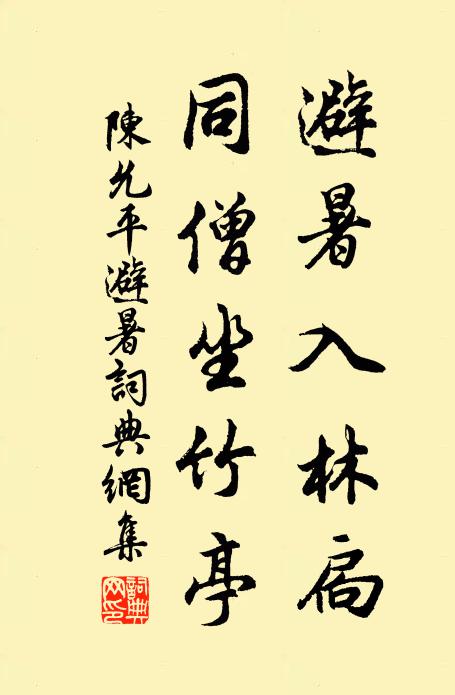 避暑入林扃
同僧坐竹亭
陳允平避暑詞典網集
詞典網印